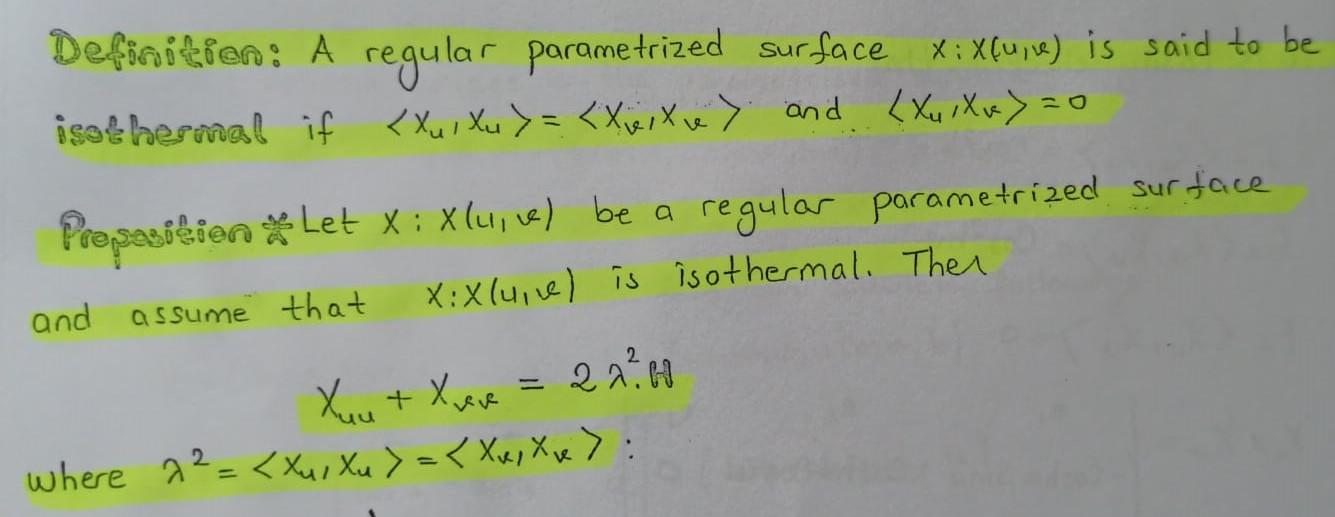 Definition: A regular parametrized surface x: x(u,v) is said to be
isothermal if <Xu, Xu> = <Xv, Xv> and <Xu, Xv> = 0
Proposition * Let X: X(u,v) be a regular parametrized surface
and assume that X: X(u,v) is isothermal. Then
Xuu + Xvv = 2λ².H
where λ² = <Xu, Xu> = <Xv, Xv> :